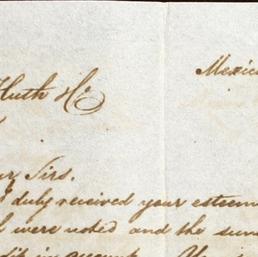 Mexico
Huth &
Sirs.
duly received your esteem
were noted and the sum
in account.